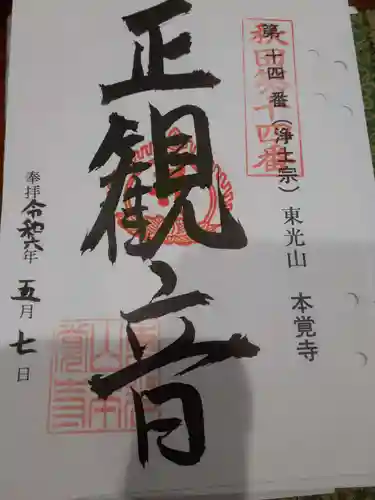 秋田第十四番
第十四番(浄土宗)
東光山 本覚寺
正観音
奉拝
令和六年 五月 七日